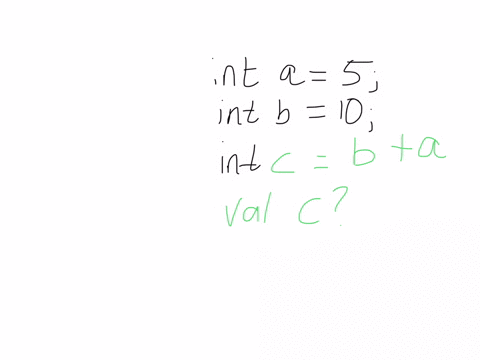 int a = 5;
int b = 10;
int c = b + a
val c?